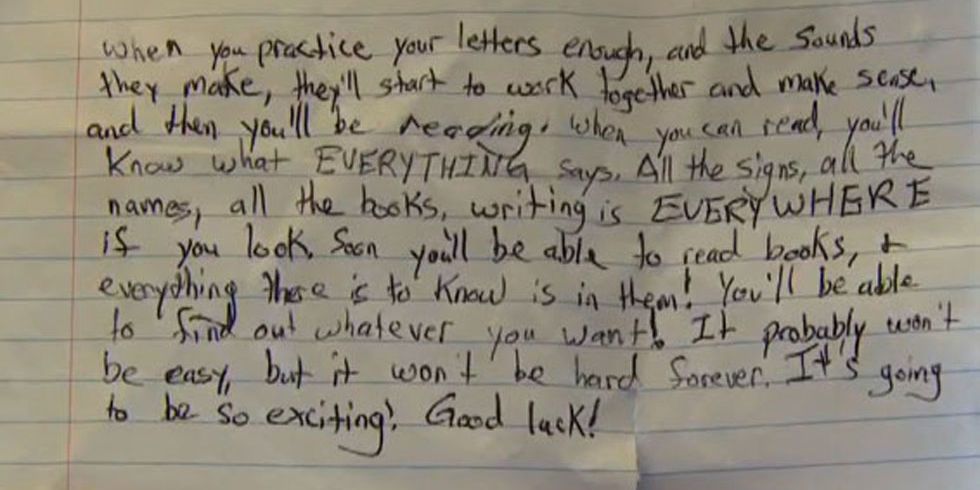 when you practice your letters enough, and the sounds
they make, they'll start to work together and make sense,
and then you'll be reading. When you can read, you'll
Know what EVERYTHING says. All the signs, all the
names, all the books, writing is EVERYWHERE
if you look. Soon you'll be able to read books, &
everything there is to know is in them! You'll be able
to find out whatever you want! It probably won't
be easy, but it won't be hard forever. It's going
to be so exciting! Good luck!